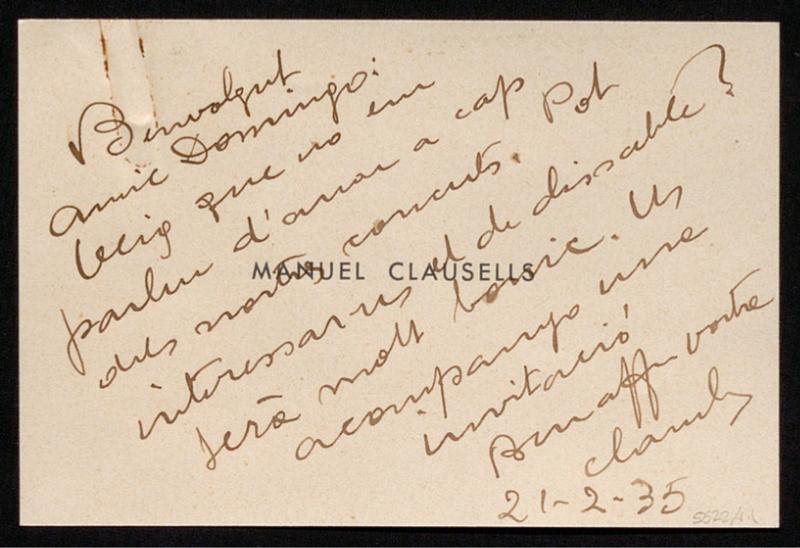 Benvolgut
amic Domingo:
Veig que no em
parleu d'anar a cap
dels nostres concerts. Pot
interessar-us el de dissabte?
Serà molt bonic. Us
acompanyo una
invitació
Ben affm vostre
Clausells
21-2-35
MANUEL CLAUSELLS